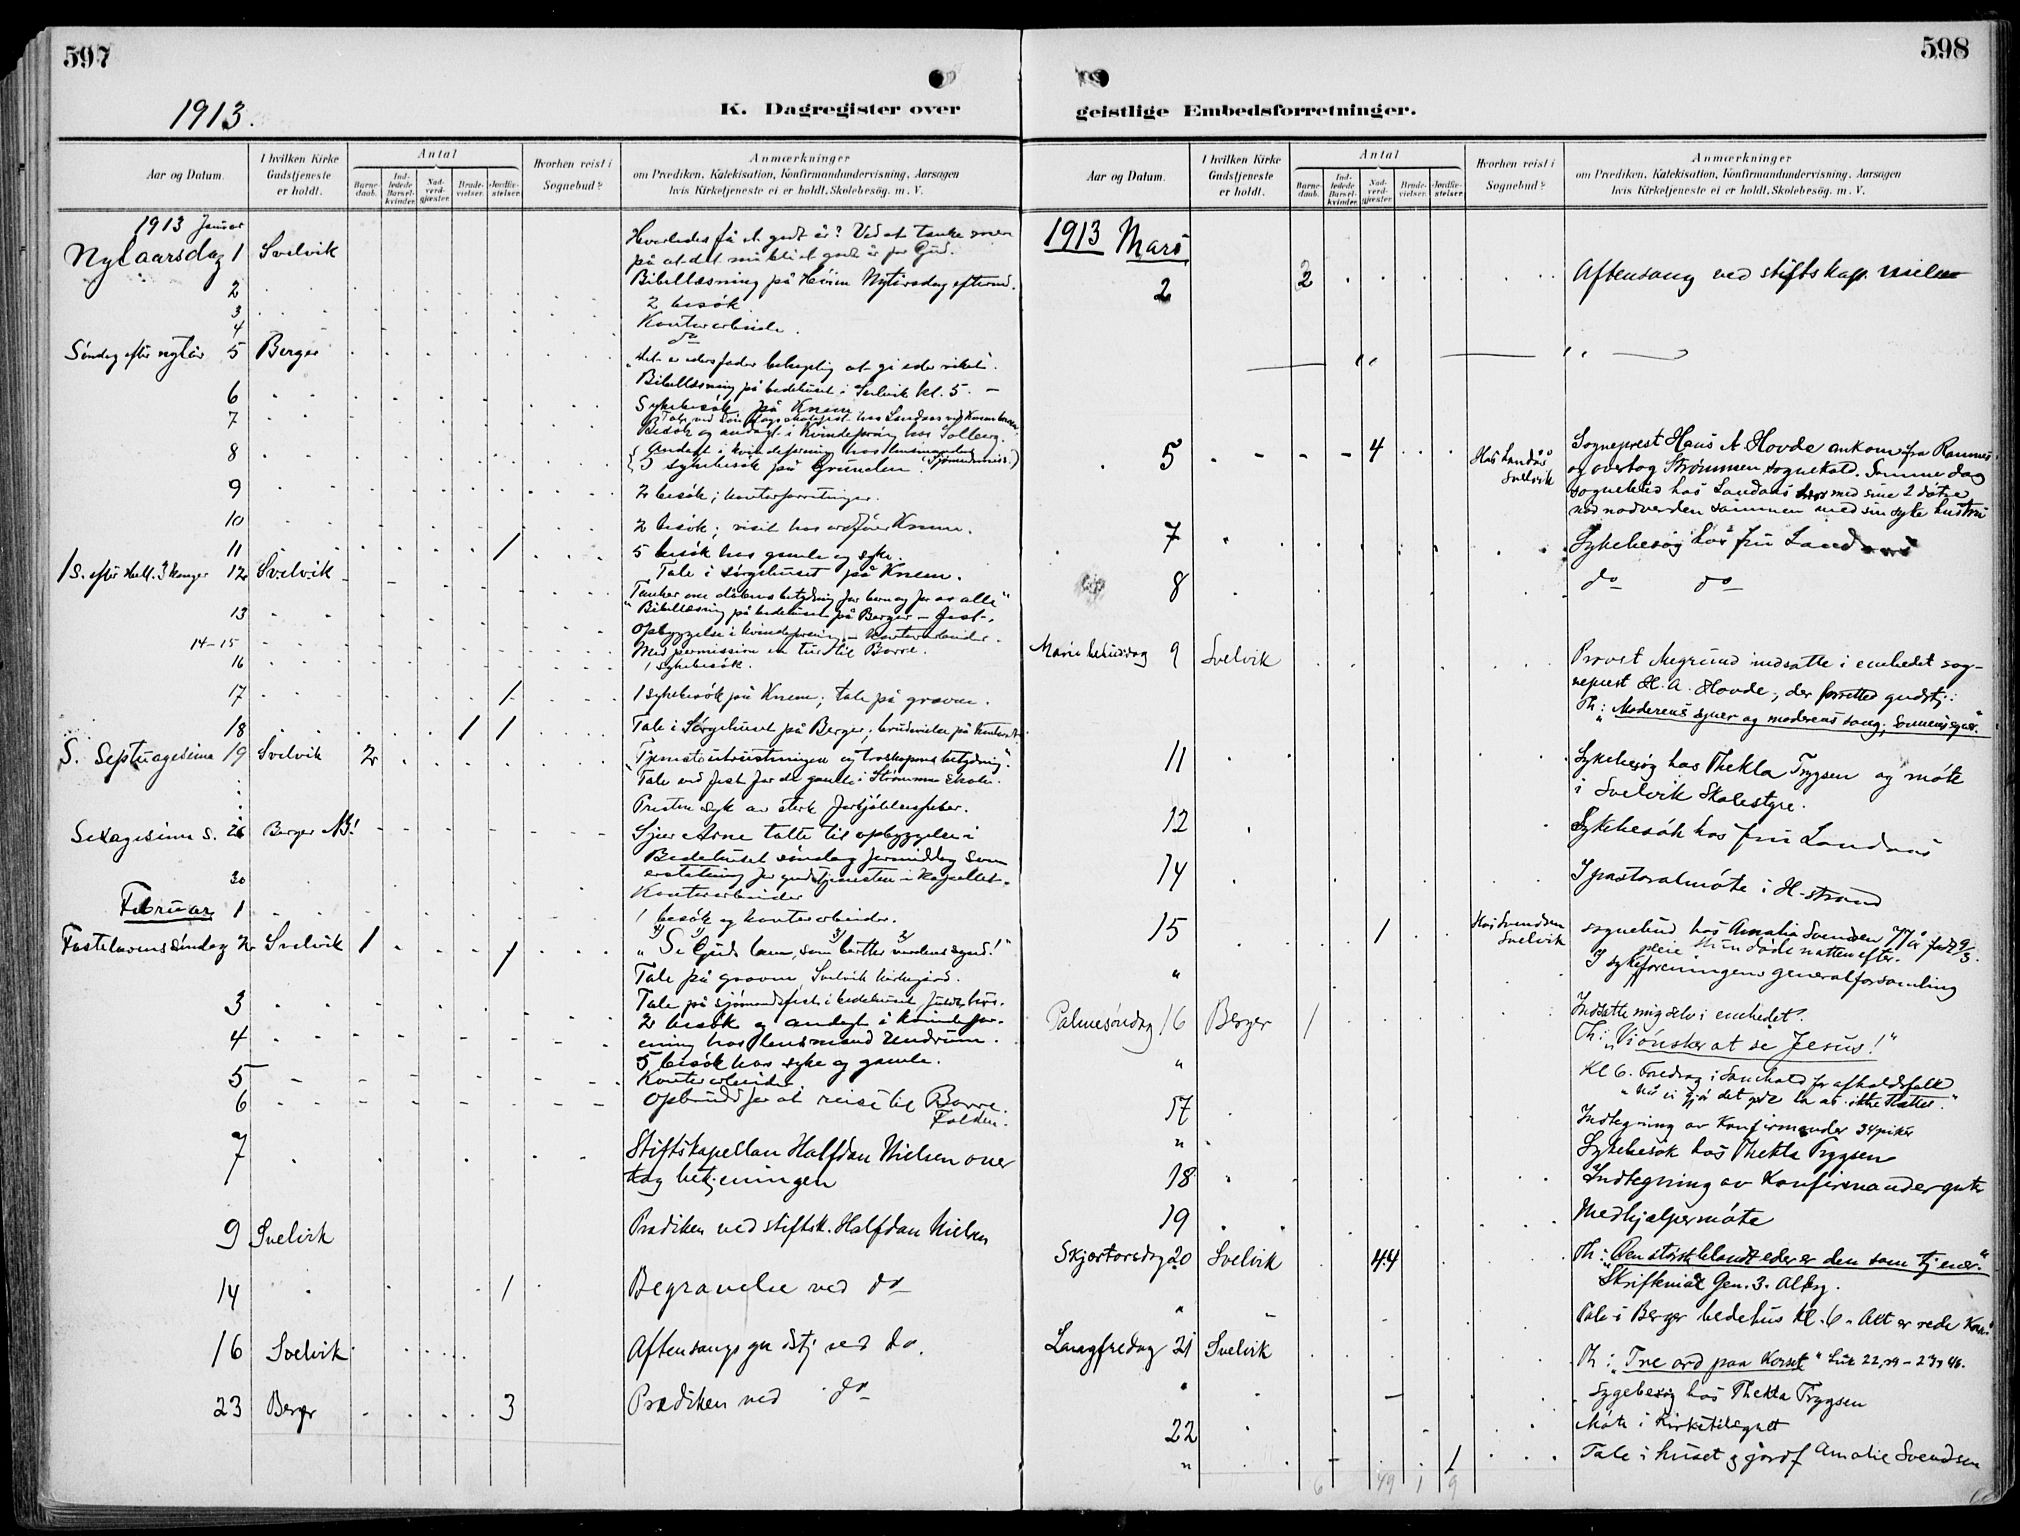 597
1913.
K. Dagregister over
Aar og Datum.
I hvilken Kirke
Gudstjeneste
er holdt.
Antal
Barne-
daab.
Ind-
ledede
Barsel-
kvinder.
Nad-
verd-
gjæster.
Brude-
vielser.
Jordfæ-
stelser.
Hvorhen reist i
Sognebud?
Anmærkninger
om Prædiken, Katekisation, Konfirmandundervisning, Aarsagen
hvis Kirketjeneste ei er holdt, Skolebesøg. m. V.
1913 Januar
Nytaarsdag 1 Svelvik
Hvorledes få et godt år? Ved at tænke
på at det må bli et godt år for Gud.
2 Bibellæsning på Nytårsdag efterm.
3 2 besök
4 Kontorarbeide.
do
Söndag efter nytår 5 Berger
"Det er eders fader behagelig at gi eder riket".
Bibellæsning på bedehuset i Svelvik kl. 5.
6 Sykebesök på Knem
7
Besök og andagt i Kvindeforening hos Solberg.
8 Andagt i kvindeforening hos lensmanden
3 sykebesök på Grunden.
9 2 besök; kontorforretninger.
10 2 besök; visit hos ordförer Knem.
11 1 5 besök hos gamle og syke.
Tale i sörgehuset på Knem.
1 S. efter Hell. 3 Konger 12 Svelvik
Tanker om dåbens betydning for barn og for os alle"
13 Bibellæsning på bedehuset på Berger
Opbyggelse i kvindeforening - Kontorarbeider.
14-15 Med permission en tur til Borre.
16 1 sykebesök.
17 1 1 sykebesök på Knem; tale på graven.
18 1 1 Tale i Sörgehuset på Berger; brudevielse på Kontoret.
S. Septuagesima 19 Svelvik 2
Tjenesteutrustningen og troskapens betydning."
Tale ved fest for de gamle i Strömm skole.
Presten syk av sterk forkjölelsesfeber.
Sexagesima S. 26 Berger NB!
Arne talte til opbyggelse i
Bedehuset söndag formiddag som
erstatning for gudstjenesten i kapellet.
30 Kontorarbeider
Februar 1 1 besök og kontorarbeider.
Fastelavenssöndag 2 Svelvik 1 1
"Se Guds lam, som bærer verdens synd!"
Tale på graven Svelvik kirkegård.
3 Tale på sjömandsfest i bedehuset
2 besök og andagt i kvindefor-
4 ening hos lensmand Undrum.
5 besök hos syke og gamle.
5 Kontorarbeider.
6 Opbrudd for at reise til Borre.
Falden.
7 Stiftskapellan Halfdan Nielsen over
tog betjeningen
9 Svelvik Prædiken ved stiftsk. Halfdan Nielsen
14 1 Begravelse ved do
16 Svelvik Aftensangs gudstj ved do.
23 Berger 3 Prædiken ved do
598
geistlige Embedsforretninger.
Aar og Datum.
I hvilken Kirke
Gudstjeneste
er holdt.
Antal
Barne-
daab.
Ind-
ledede
Barsel-
kvinder.
Nad-
verd-
gjæster.
Brude-
vielser.
Jordfæ-
stelser.
Hvorhen reist i
Sognebud?
Anmærkninger
om Prædiken, Katekisation, Konfirmandundervisning, Aarsagen
hvis Kirketjeneste ei er holdt, Skolebesög. m. V.
1913 Mars
2 2 Aftensang ved stiftskap. Nielsen
5 4 Hos Landås Svelvik
Sogneprest Hans A. Hovde ankom fra Ramnes
og overtog Strømmen sognekald. Samme dag
sognebud hos Landaas med sine 2 døtre
nød nadverden sammen med sin syke hustru
7 Sykebesøg hos fru Landaas
8 do do
Marie budsdag 9 Svelvik
Provst Megrund indsatte i embedet sog-
neprest H. A. Hovde, der forrettet gudstj.
Th: "Moderens syner og moderens sang; sønnens syner."
11 Sykebesøg hos Thekla Trygsen og møte
i Svelvik Skolestyre.
12 Sykebesøk hos fru Landaas
14 I pastoralmøte i H-strand
15 1 Hos Svendsen Svelvik
sognebud hos Amalia Svendsen 77 år
Hun døde natten efter.
" I sykepleieforeningens generalforsamling
Palmesøndag 16 Berger 1
Indsatte mig selv i embedet.
Th: "Vi ønsker at se Jesus!"
" Kl 6. Foredrag i for afholdsfolk
"Når vi gjør det gode la os ikke trættes."
17 Indtegning av Konfirmander 34 piker
" Sykebesøk hos Thekla Trygsen
18 Indtegning av Konfirmander gutter
19 Medhjælpermøte
Skjærtorsdag 20 Svelvik 44
Th: "Den største blandt eder er den som tjener."
Skriftemål Gen. 3. Altbg.
" Tale i Berger bedehus kl. 6. Alt er rede Kom!
Langfredag 21 Svelvik
Th: "Tre ord paa Korset" Luk 22,
" Sygebesøg hos Thekla Trygsen
22 Møte i Kirketilsynet
" 1 Tale i huset og jordf Amalie Svendsen
6 49 1 9